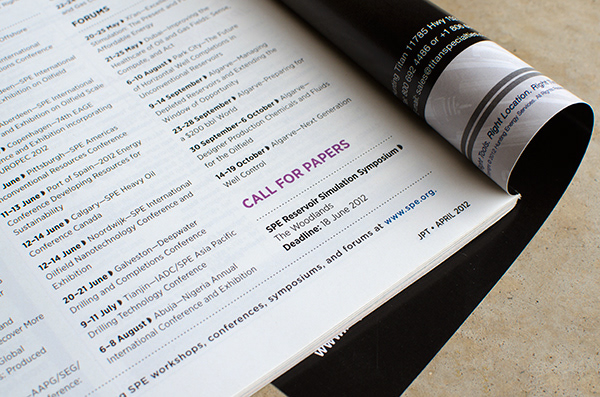 FORUMS
20–25 May
21–25 May
Dubai—Improving the
Healthcare of Oil and Gas Fields: Sense,
Compute, and Act
6–10 August
Park City—The
Horizontal Well Completions in
Unconventional Reservoirs
9–14 September
Algarve—Managing
Depleted Reservoirs and Extending the
Window of Opportunity
23–28 September
Algarve—Preparing for
a $200 bbl World
30 September–6 October
Algarve—
Designer Production Chemicals and Fluids
for the Oilfield
14–19 October
Algarve—Next Generation
Well Control
CALL FOR PAPERS
SPE Reservoir Simulation Symposium
The Woodlands
Deadline: 18 June 2012
Offshore
International
Conference
Aberdeen—SPE International
Exhibition on Oilfield
Aberdeen—SPE International
and Exhibition on Oilfield Scale
Copenhagen—74th EAGE
Conference and Exhibition incorporating
EUROPEC 2012
June Pittsburgh—SPE Americas
Unconventional Resources Conference
11–13 June Port of Spain—2012 Energy
Conference Developing Resources for
Sustainability
12–14 June Calgary—SPE Heavy Oil
Conference Canada
12–14 June Noordwijk—SPE International
Oilfield Nanotechnology Conference and
Exhibition
20–21 June Galveston—Deepwater
Drilling and Completions Conference
9–11 July Tianjin—IADC/SPE Asia Pacific
Drilling Technology Conference
6–8 August Abuja—Nigeria Annual
International Conference and Exhibition
SPE workshops, conferences, symposiums, and forums at www.spe.org.
JPT • APRIL 2012
Discover More
Global
s: Produced
—AAPG/SEG/
Titan 11785 Hwy
800 692 4486 or +1 806
email: sales@titanspecialties
Tools. Right Location. Right
www.